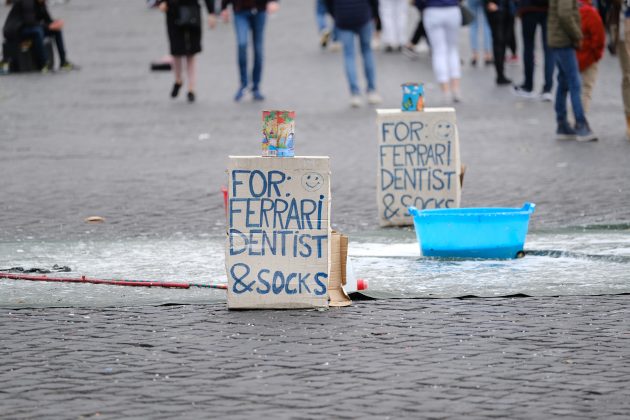 FOR:
FERRARI
DENTIST
& SOCKS
FOR:
FERRARI
DENTIST
& SOCKS